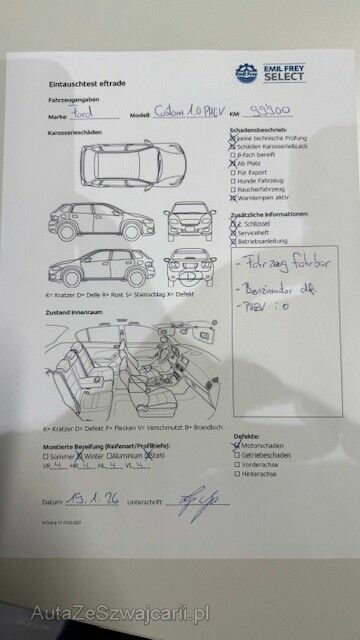 EMIL FREY
SELECT
Eintauschtest eftrade
Fahrzeugangaben
Marke: Ford Modell: Custom 1.0 PHEV KM: 99900
Karosserieschäden
Schadensbeschrieb:
keine technische Prüfung
Schäden Karosserie&Lack
B-fach bereift
Ab Platz
Für Export
Hunde Fahrzeug
Raucherfahrzeug
Warnlampen aktiv
Zusätzliche Informationen:
2. Schlüssel
Serviceheft
Betriebsanleitung
K= Kratzer D= Delle R= Rost S= Steinschlag X= Defekt
- Fahrzeug fahrbar
- Benzinmotor def.
- PHEV i.O
Zustand Innenraum
K= Kratzer D= Defekt F= Flecken V= Verschmutzt B= Brandloch
Montierte Bereifung (Reifenart/Profiltiefe):
Sommer Winter Aluminium Stahl
VR 4 HR 4 HL 4 VL 4
Defekte:
Motorschaden
Getriebeschaden
Vorderachse
Hinterachse
Datum: 19.1.26 Unterschrift:
AutaZeSzwajcarii.pl